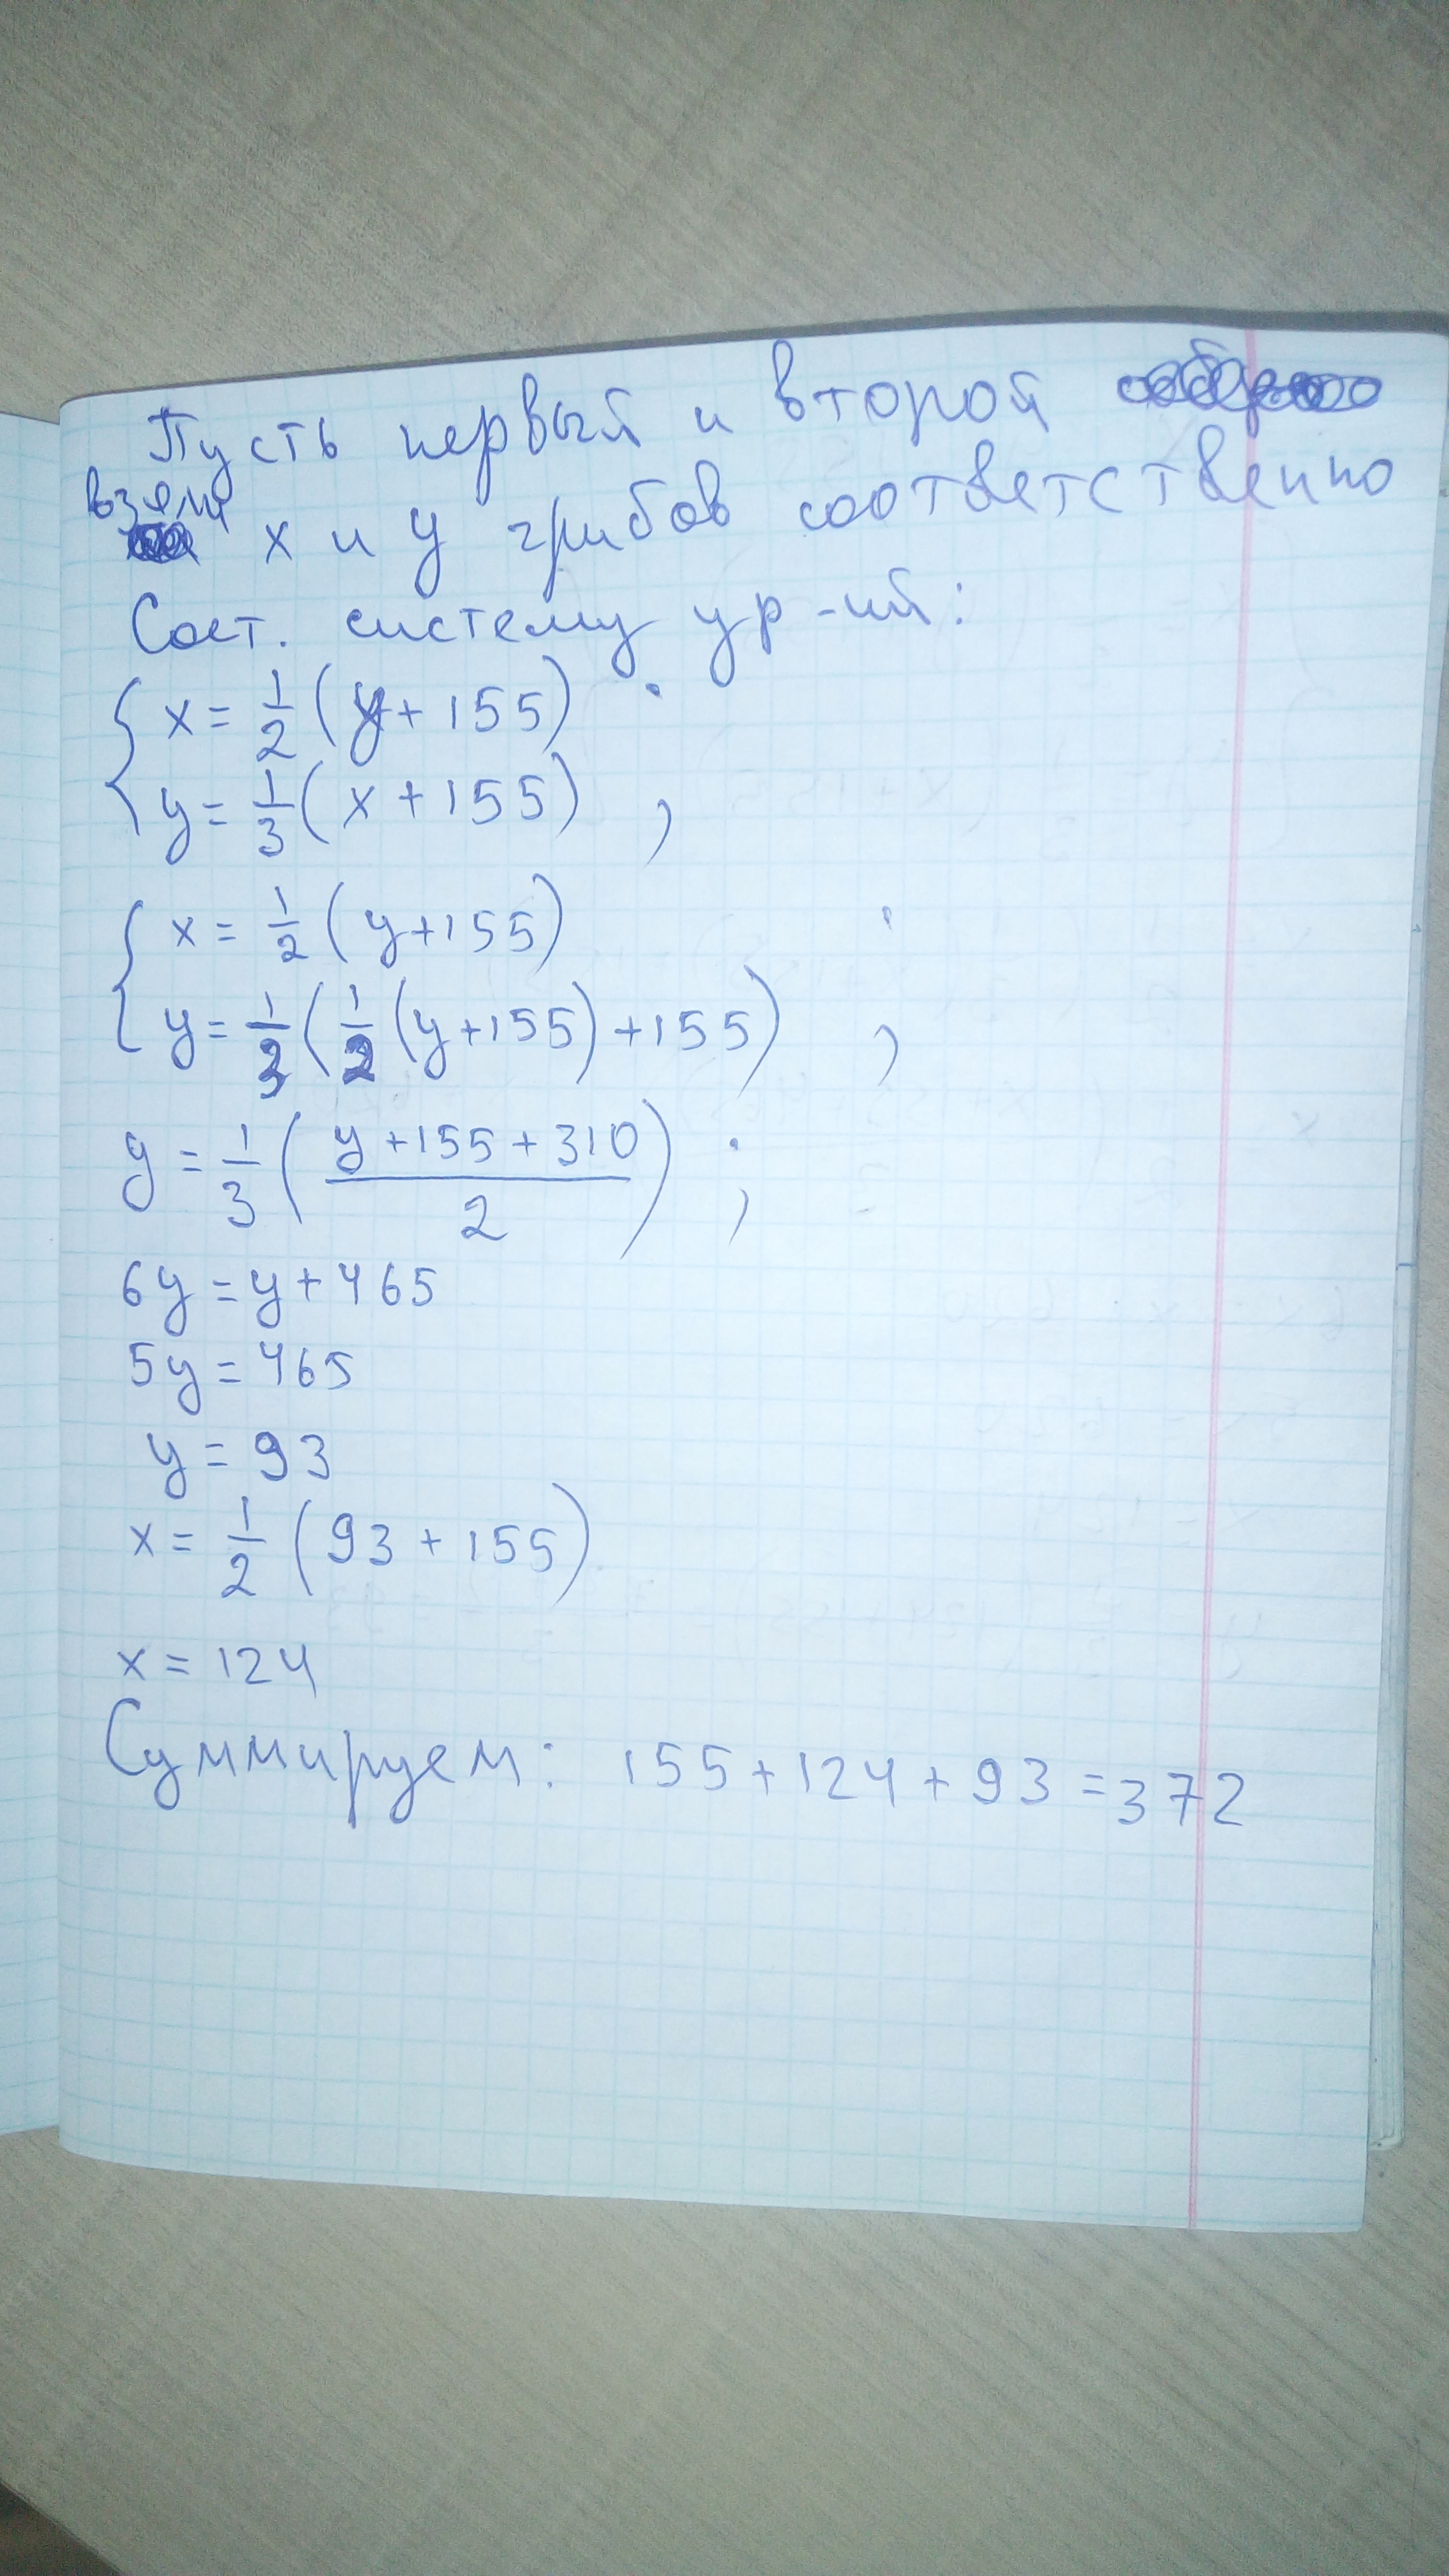 Пусть первый и второй
взяли х и у грибов соответственно
Сост. систему ур-ий:
{ x = 1/2 (y + 155)
y = 1/3 (x + 155) ;
{ x = 1/2 (y + 155)
y = 1/3 (1/2 (y + 155) + 155) ;
y = 1/3 ( (y + 155 + 310) / 2 ) ;
6y = y + 465
5y = 465
y = 93
x = 1/2 (93 + 155)
x = 124
Суммируем: 155 + 124 + 93 = 372